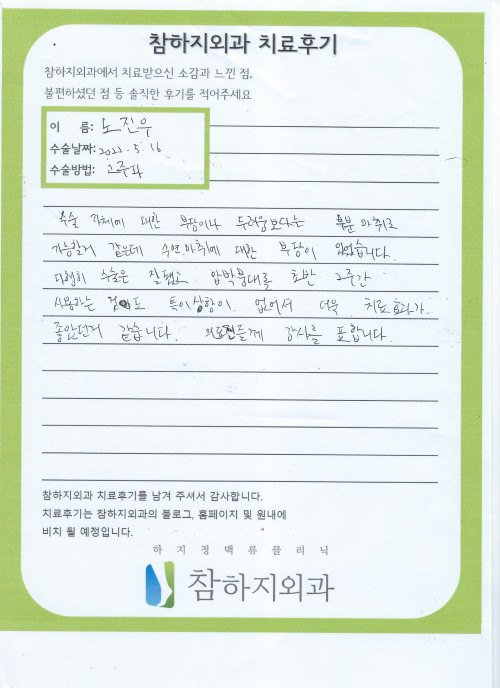 참하지외과 치료후기
참하지외과에서 치료받으신 소감과 느낀 점,
불편하셨던 점 등 솔직한 후기를 적어주세요
이 름: 노진우
수술날짜: 2022. 5. 16
수술방법: 고주파
수술 자체에 대한 부담이나 두려움보다는 부분 마취로
가능할거 같은데 수면마취에 대한 부담이 있었습니다.
다행히 수술은 잘됐고 압박붕대를 초반 2주간
사용하는 것도 특이상항이 없어서 더욱 치료효과가
좋았던거 같습니다. 의료진들께 감사를 표합니다.
참하지외과 치료후기를 남겨 주셔서 감사합니다.
치료후기는 참하지외과의 블로그, 홈페이지 및 원내에
비치 될 예정입니다.
하지정맥류클리닉
참하지외과